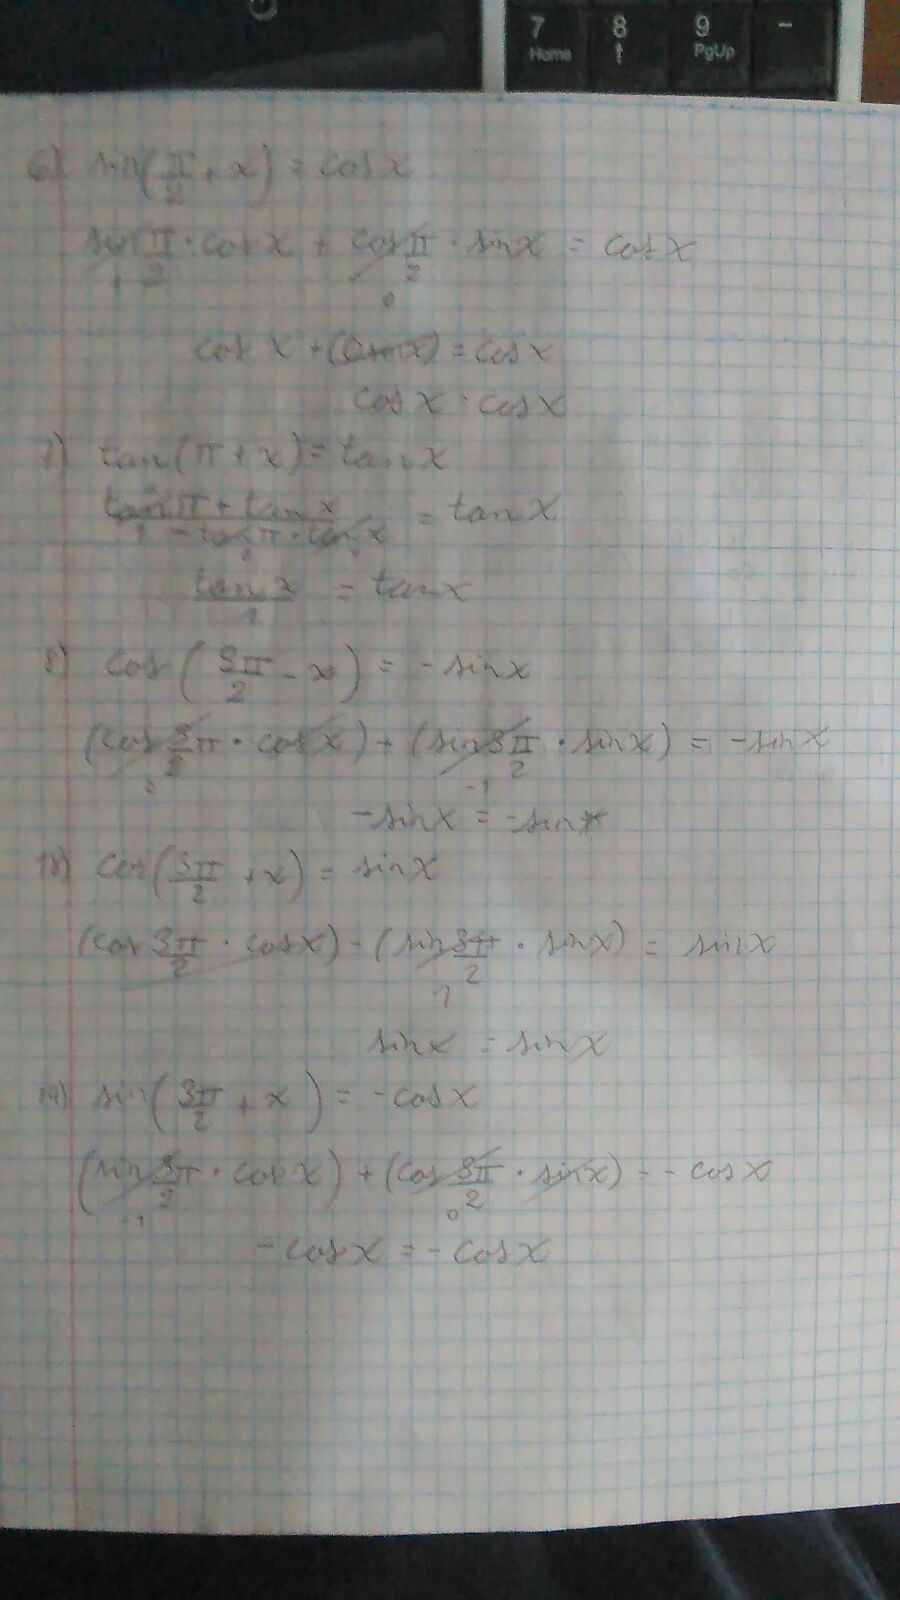 7 8 9 -
Home ↑ PgUp
6) sin(π/2 + x) = cos x
sin π/2 · cos x + cos π/2 · sin x = cos x
1 0
cos x + (0 sin x) = cos x
cos x = cos x
7) tan(π + x) = tan x
tan π + tan x / 1 - tan π · tan x = tan x
tan x / 1 = tan x
8) cos(3π/2 - x) = - sin x
(cos 3/2 π · cos x) + (sin 3π/2 · sin x) = - sin x
0 -1
- sin x = - sin x
cos(3π/2 + x) = sin x
(cos 3π/2 · cos x) - (sin 3π/2 · sin x) = sin x
1
sin x = sin x
sin(3π/2 + x) = - cos x
(sin 3/2 π · cos x) + (cos 3π/2 · sin x) = - cos x
-1 0
- cos x = - cos x